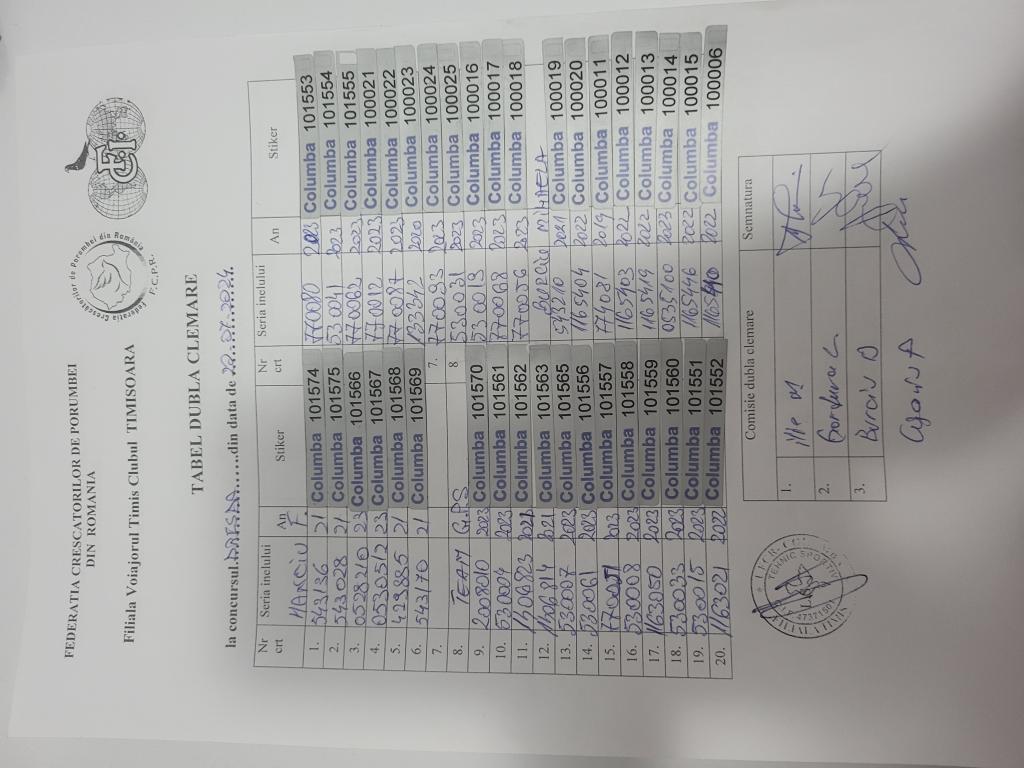 FEDERATIA CRESCATORILOR DE PORUMBEI
DIN ROMANIA
Filiala Voiajorul Timis Clubul TIMISOARA
Federatia Crescătorilor de Porumbei din România
F.C.P.R.
FCI
TABEL DUBLA CLEMARE
la concursul. DRESDA ......din data de 22.07.2024.
Nr crt Seria inelului An Stiker Nr crt Seria inelului An Stiker
MARCIU F. 770080 2023 Columba 101553
1. 543136 21 Columba 101574 530041 2023 Columba 101554
2. 543028 21 Columba 101575 770062 2023 Columba 101555
3. 0528210 23 Columba 101566 770012 2023 Columba 100021
4. 0530512 23 Columba 101567 770097 2023 Columba 100022
5. 429885 21 Columba 101568 133342 2020 Columba 100023
6. 543170 21 Columba 101569 770093 2023 Columba 100024
7. 7. 530031 2023 Columba 100025
8. TEAM G.P.S 8 530013 2023 Columba 100016
9. 2008010 2023 Columba 101570 770068 2023 Columba 100017
10. 530004 2023 Columba 101561 770056 2023 Columba 100018
11. 1106823 2021 Columba 101562 BURCIU MIHAELA
12. 1106814 2021 Columba 101563 573210 2021 Columba 100019
13. 530007 2023 Columba 101565 1165404 2022 Columba 100020
14. 530061 2023 Columba 101556 774081 2019 Columba 100011
15. 770051 2023 Columba 101557 1165403 2022 Columba 100012
16. 530008 2023 Columba 101558 1165419 2022 Columba 100013
17. 1163050 2023 Columba 101559 0535100 2023 Columba 100014
18. 530033 2023 Columba 101560 1165446 2022 Columba 100015
19. 530015 2023 Columba 101551 2022 Columba 100006
20. 1163021 2022 Columba 101552
Comisie dubla clemare Semnatura
1. Ilie M
2.
3. Burciu D
TEHNIC SPORTIV